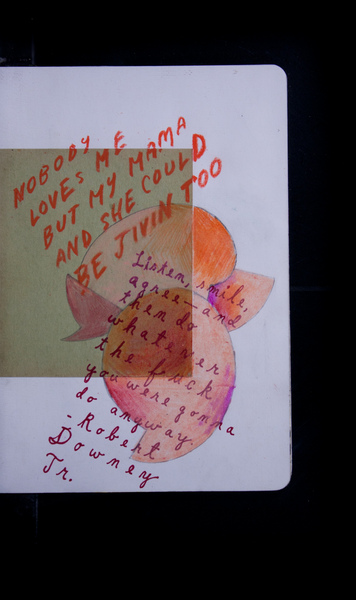 NOBODY
LOVES ME
BUT MY MAMA
AND SHE COULD
BE JIVIN TOO
Listen, smile,
agree—and
then do
whatever
the fuck
you were gonna
do anyway.
-Robert
Downey
Jr.